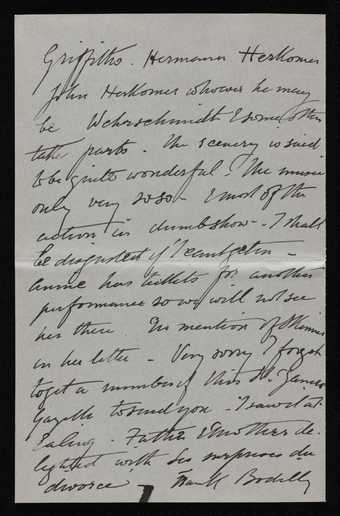 Griffiths. Hermann Herkomer
John Herkomer whoever he may
be Wehrschmidt & some other
take parts. The scenery is said
to be quite wonderful. The music
only very so so - & most of the
action in dumbshow - I shall
be disgusted if I cant get in -
Annie has tickets for another
performance so we will not see
her there. No mention of
in her letter - Very sorry I forgot
to get a number of this St. James's
Gazette to send you - I saw it at
Ealing. Father & Mother de-
lighted with Les surprises du
divorce Frank Bodilly